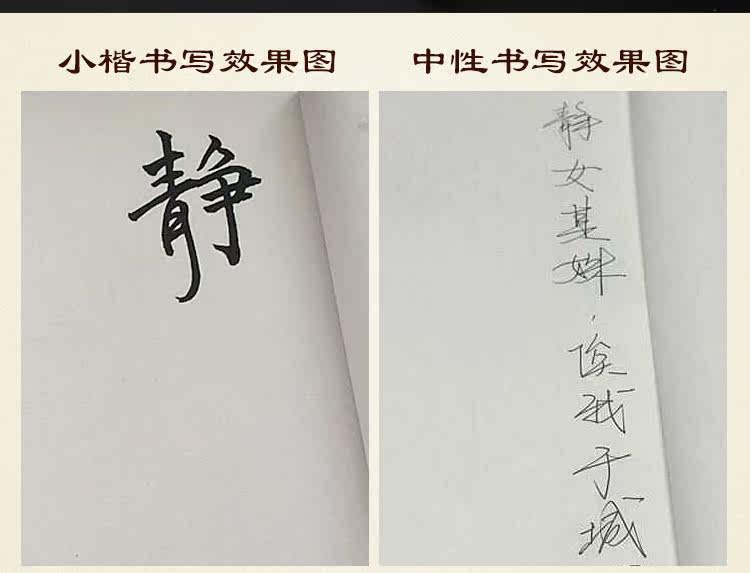 小楷书写效果图
中性书写效果图
静
静女其姝，俟我于城